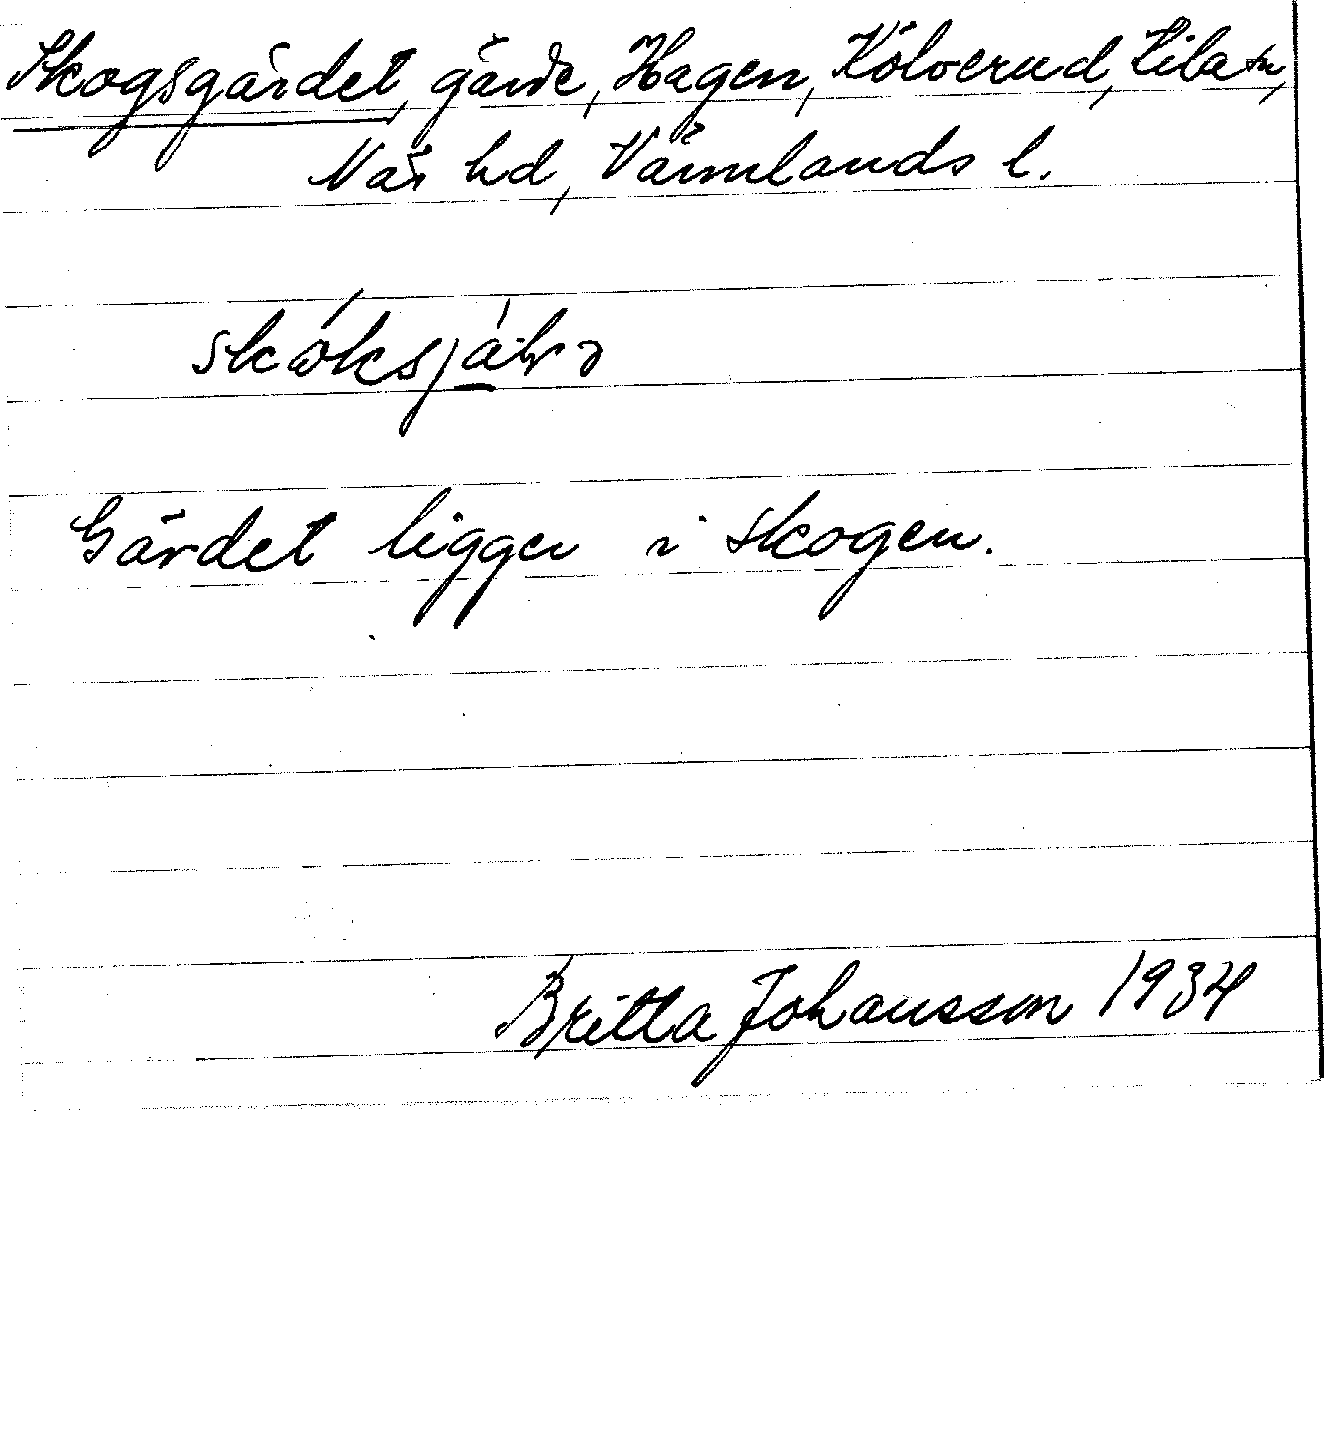 Skogsgärdet, gärde, Hagen, Kölverud, Kila sn,
Näs hd, Värmlands l.
Gärdet ligger i skogen.
Britta Johansson 1934